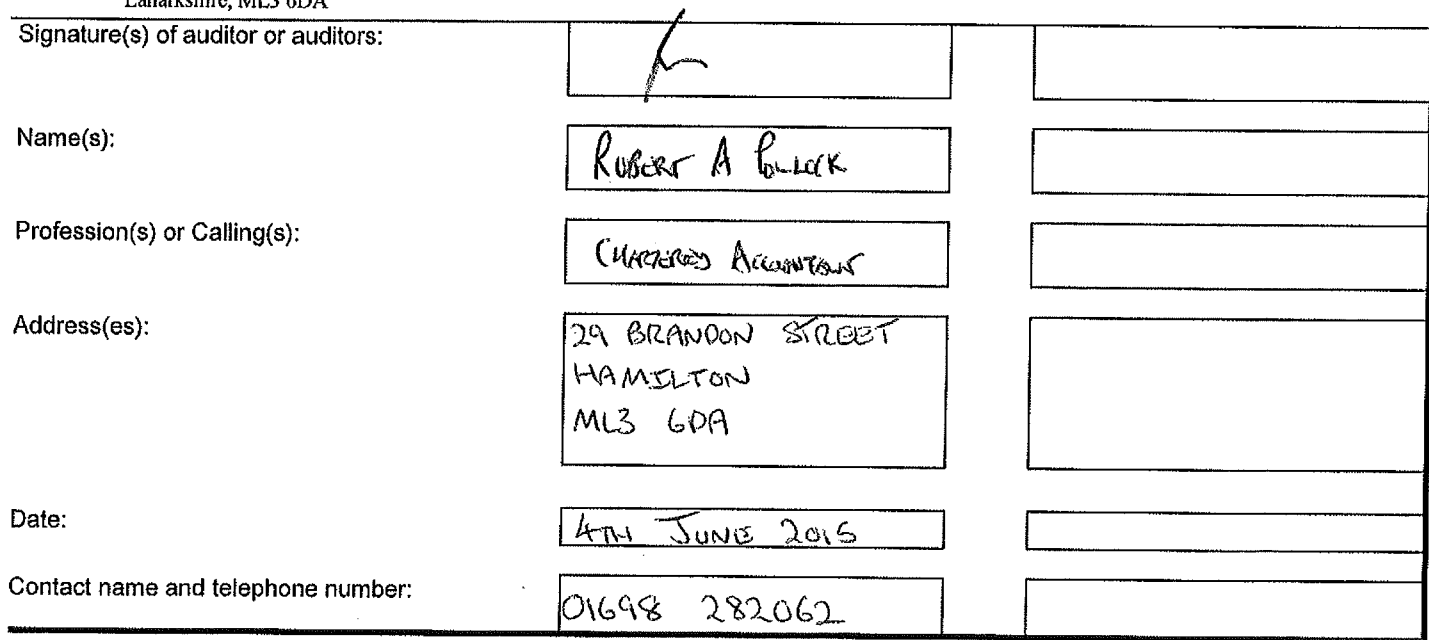 Lanarkshire, ML3 6DA
Signature(s) of auditor or auditors:
Name(s):
ROBERT A POLLOCK
Profession(s) or Calling(s):
CHARTERED ACCOUNTANT
Address(es):
29 BRANDON STREET
HAMILTON
ML3 6DA
Date:
4TH JUNE 2015
Contact name and telephone number:
01698 282062